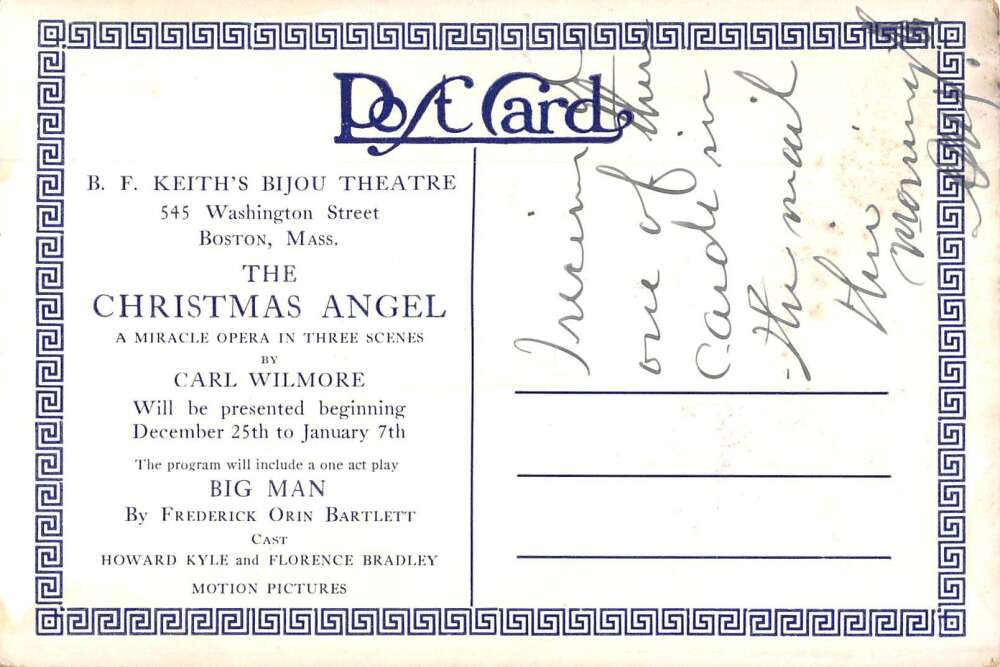 Post Card
B. F. KEITH'S BIJOU THEATRE
545 Washington Street
BOSTON, MASS.
THE
CHRISTMAS ANGEL
A MIRACLE OPERA IN THREE SCENES
BY
CARL WILMORE
Will be presented beginning
December 25th to January 7th
The program will include a one act play
BIG MAN
By FREDERICK ORIN BARTLETT
CAST
HOWARD KYLE and FLORENCE BRADLEY
MOTION PICTURES
I received
one of these
cards in
the mail
this
morning